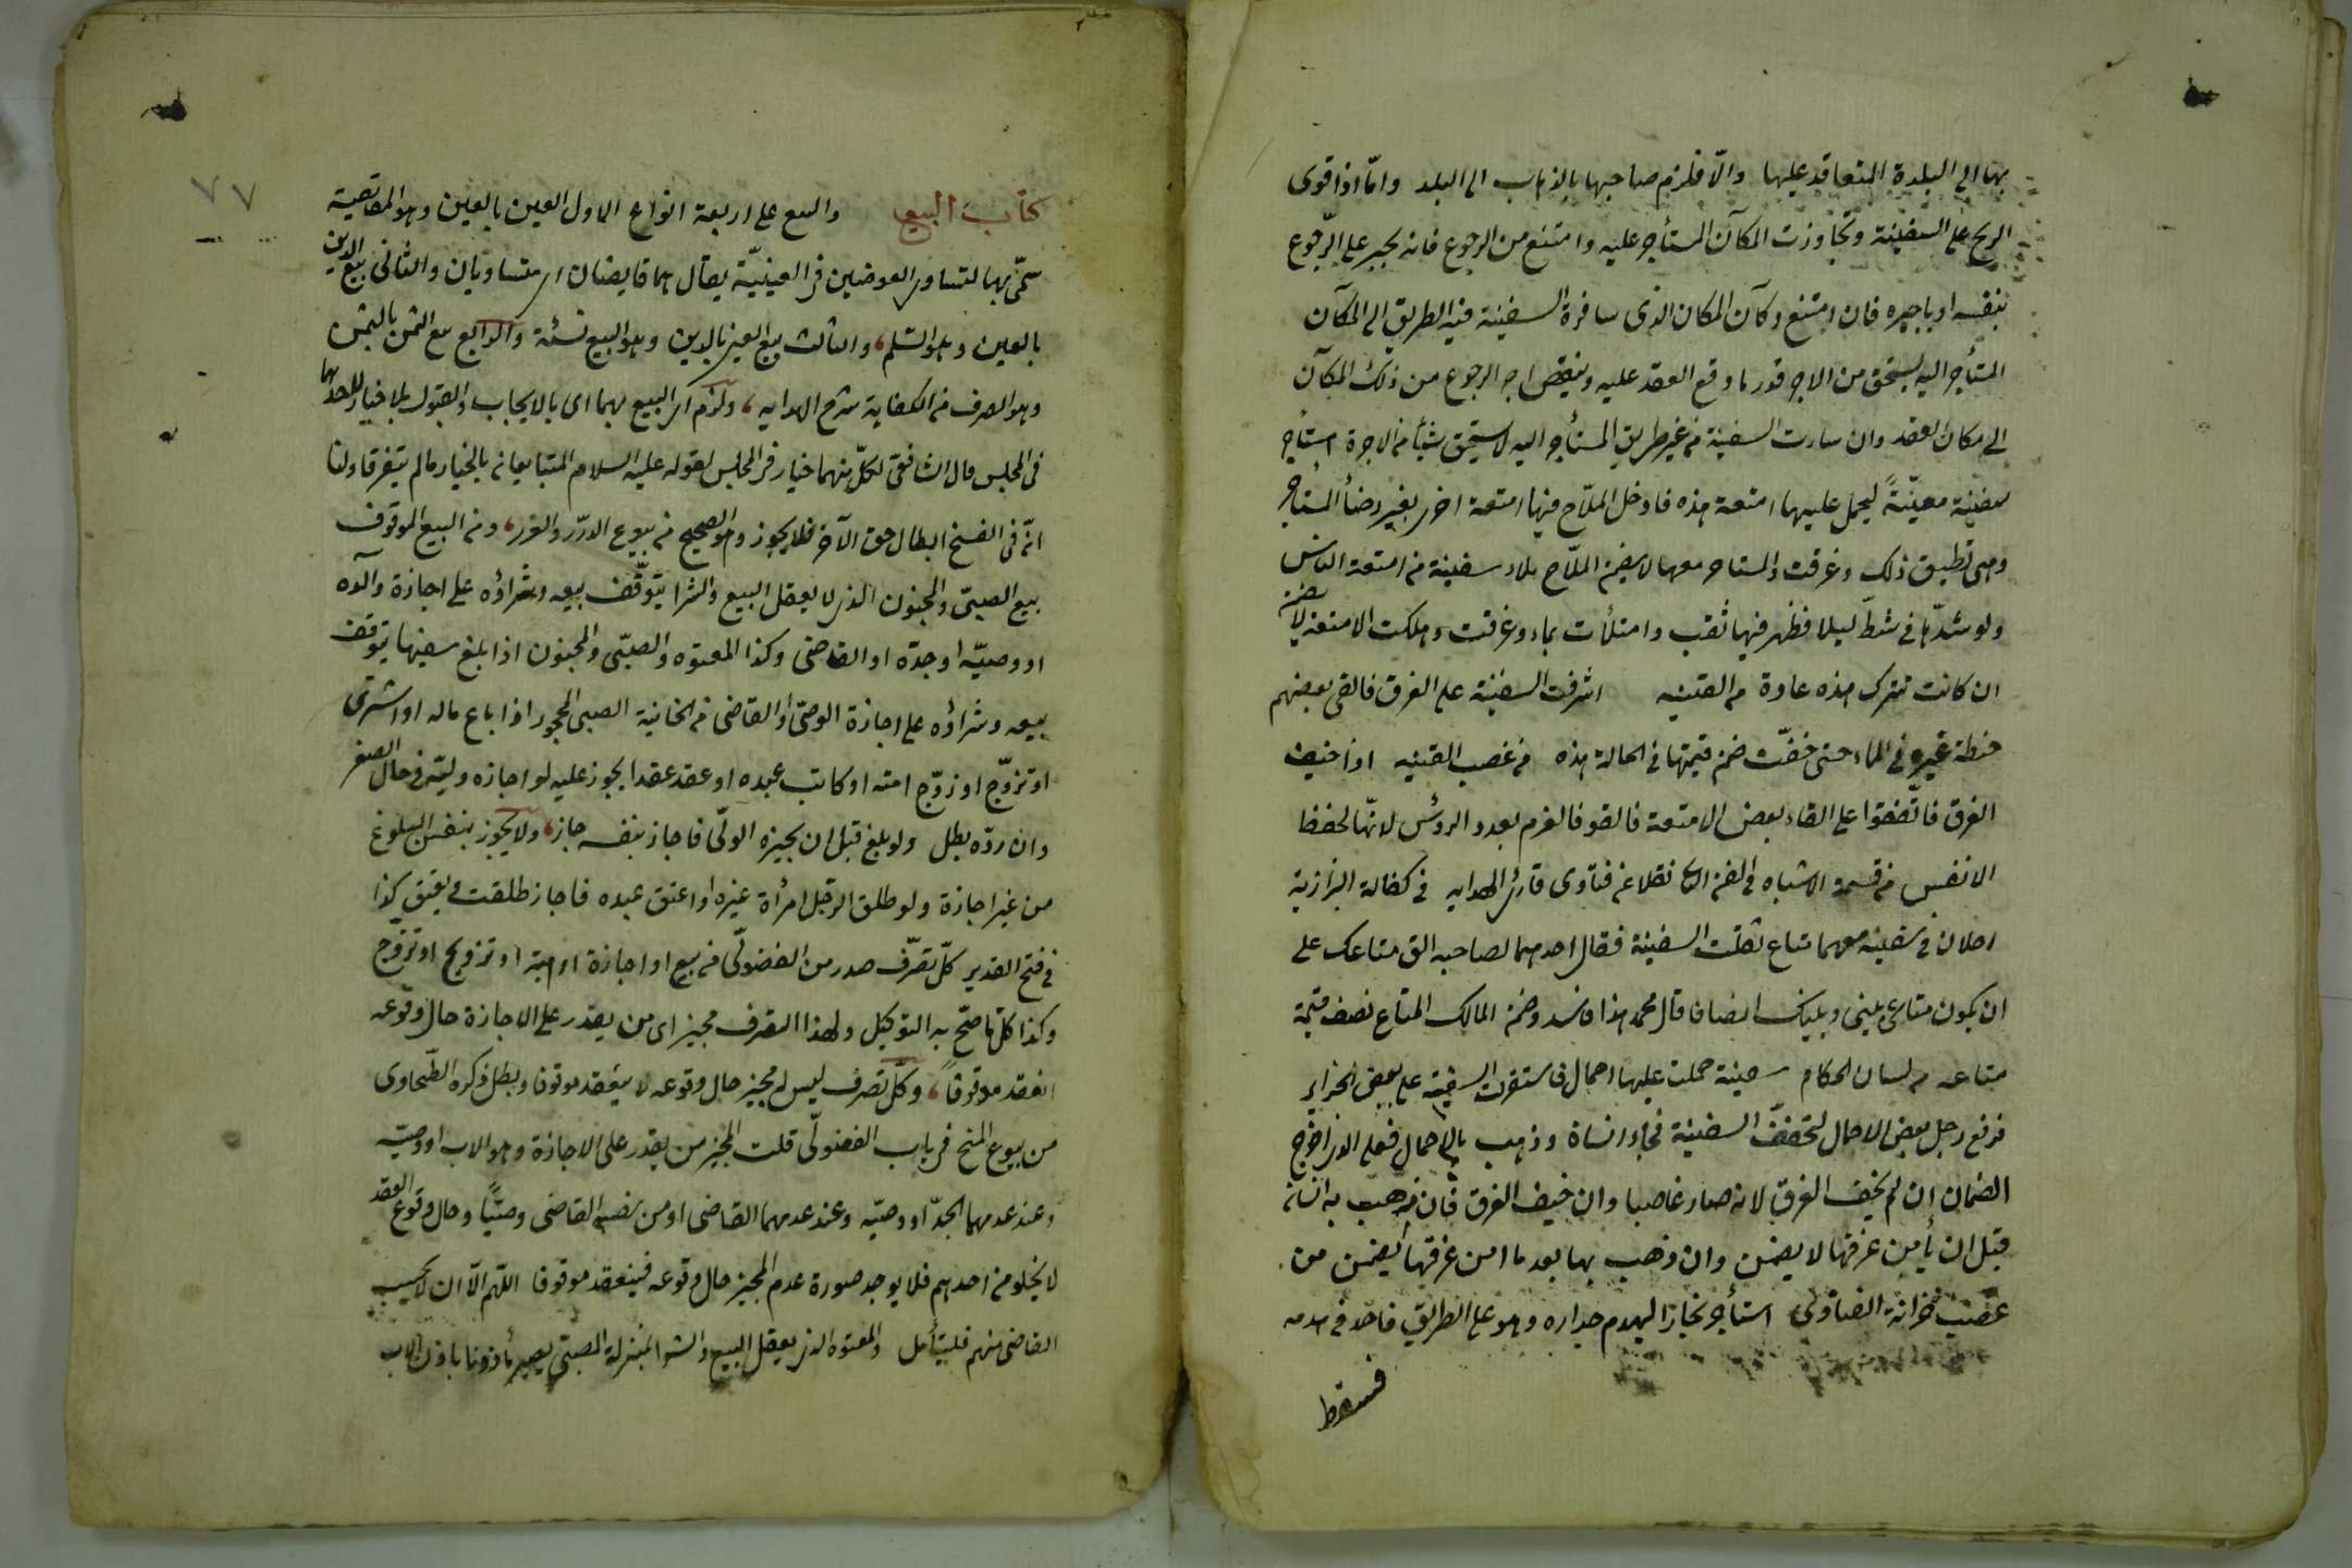 بها الى البلدة المتعاقد عليها والّا فلزم صاحبها بالذهاب الى البلد وامّا اذا قوى
الريح على السفينة وتجاوزت المكان المستأجر عليه وامتنع من الرجوع فانه يجبر على الرّجوع
بنفسه او باجيره فان امتنع وكان المكان الذى سافرة السفينة فيه الطريق الى المكان
المستأجر اليه يستحق من الاجر قدر ما وقع العقد عليه وينقض اجر الرجوع من ذلك المكان
الى مكان العقد وان سارت السفينة من غير طريق المستأجر اليه لا يستحق شيئا من الاجرة استأجر
سفينة معيّنةً ليحمل عليها امتعة هذه فادخل الملّاح فيها امتعة اخرى بغير رضأ المستأجر
وهى تطيق ذلك وغرقت والمستاجر معها لا يضمن الملّاح ملاء سفينة من امتعة الناس
ولو شدّها فى شطّ ليلا فظهر فيها ثقب وامتلأت بماء وغرقت وهلكت الامتعة لا يضمن
ان كانت تترك هذه عادة من القنيه اشرفت السفينة على الغرق فالقى بعضهم
حنطة غيره فى الماء حتى خفّت ضمن قيمتها فى الحالة هذه من غصب القنيه اذا خيف
الغرق فاتّفقوا على القاء بعض الامتعة فالقوا فالغرم بعدد الرؤس لانّها لحفظ
الانفس من قسمة الاشباه فى الفن الثا نقلا عن فتاوى قارئ الهدايه فى كفالة البزازية
رجلان فى سفينة معهما متاع ثقلت السفينة فقال احدهما لصاحبه الق متاعك على
ان يكون متاعى بينى وبينك انصافا قال محمد هذا فاسد وضمن المالك المتاع نصف قيمة
متاعه من لسان الحكام سفينة حملت عليها احمال فاستقرت السفينة على بعض الجزاير
فرفع رجل بعض الاحمال لتخفف السفينة فجاء انسان وذهب بالاحمال فعلى الذى اخرج
الضمان ان لم يخف الغرق لانه صار غاصبا وان خيف الغرق فان ذهب به انسان
قبل ان يأمن غرقها لا يضمن وان ذهب بها بعد ما امن غرقها يضمن من
غصب خزانة الفتاوى استأجر نجارا ليهدم جداره وهو على الطريق فاخذ فى هدمه
فسقط
٧٧
كتاب البيع والبيع على اربعة انواع الاول العين بالعين وهو المقايضة
سمّى بها لتساوى العوضين فى العينيّة يقال هما قايضان اى متساويان والثانى بيع الدين
بالعين وهو السّلم، والثالث بيع العين بالدين وهو البيع نسئة والرّابع بيع الثمن بالثمن
وهو الصرف من الكفاية شرح الهدايه، ولزم اى البيع بهما اى بالايجاب والقبول بلا خيار لاحدهما
فى المجلس قال الشافعى لكلّ منهما خيار فى المجلس لقوله عليه السلام المتبايعان بالخيار مالم يتفرقا ولنا
انّ فى الفسخ ابطال حق الآخر فلا يجوز وهو الصحيح من بيوع الدرر والغرر، ومن البيع الموقوف
بيع الصبىّ والمجنون الذى لا يعقل البيع والشرا يتوّقف بيعه وشراؤه على اجازة والده
او وصيّه او جدّه او القاضى وكذا المعتوه والصبّى والمجنون اذا بلغ سفيها يتوقف
بيعه وشراؤه على اجازة الوصّى او القاضى من الخانية الصبى المحجور اذا باع ماله او اشترى
او تزوّج او زوّج امته او كاتب عبده او عقد عقدا يجوز عليه لو اجازه وليّه فى حال الصغر
وان ردّه بطل ولو بلغ قبل ان يجيزه الولّى فاجاز بنفسه جاز، ولا يجوز بنفس البلوغ
من غير اجازة ولو طلق الرجل امرأة غيره او اعتق عبده فاجاز طلقت ويعتق كذا
فى فتح القدير كلّ تصرّف صدر من الفضولّى من بيع او اجازة او هبة او تزويج او تزوّج
وكذا كلّ ما صحّ به التوكيل ولهذا التصرف مجيز اى من يقدر على الاجازة حال وقوعه
انعقد موقوفاً، وكلّ تصرف ليس له مجيز حال وقوعه لا ينعقد موقوفا وبطل ذكره الطّحاوى
من بيوع المنح فى باب الفضولّى قلت المجيز من يقدر على الاجازة وهو الاب او وصيّه
وعند عدمهما الجدّ او وصيّه وعند عدمهما القاضى او من نصبه القاضى وصيّاً وحال وقوع العقد
لا يخلو من احدهم فلا يوجد صورة عدم المجيز حال وقوعه فينعقد موقوفا اللّهم الّا ان لا يحسب
القاضى منهم فليتأمل والمعتوه الذى يعقل البيع والشرا بمنزلة الصبّى يصير مأذونا باذن الاب